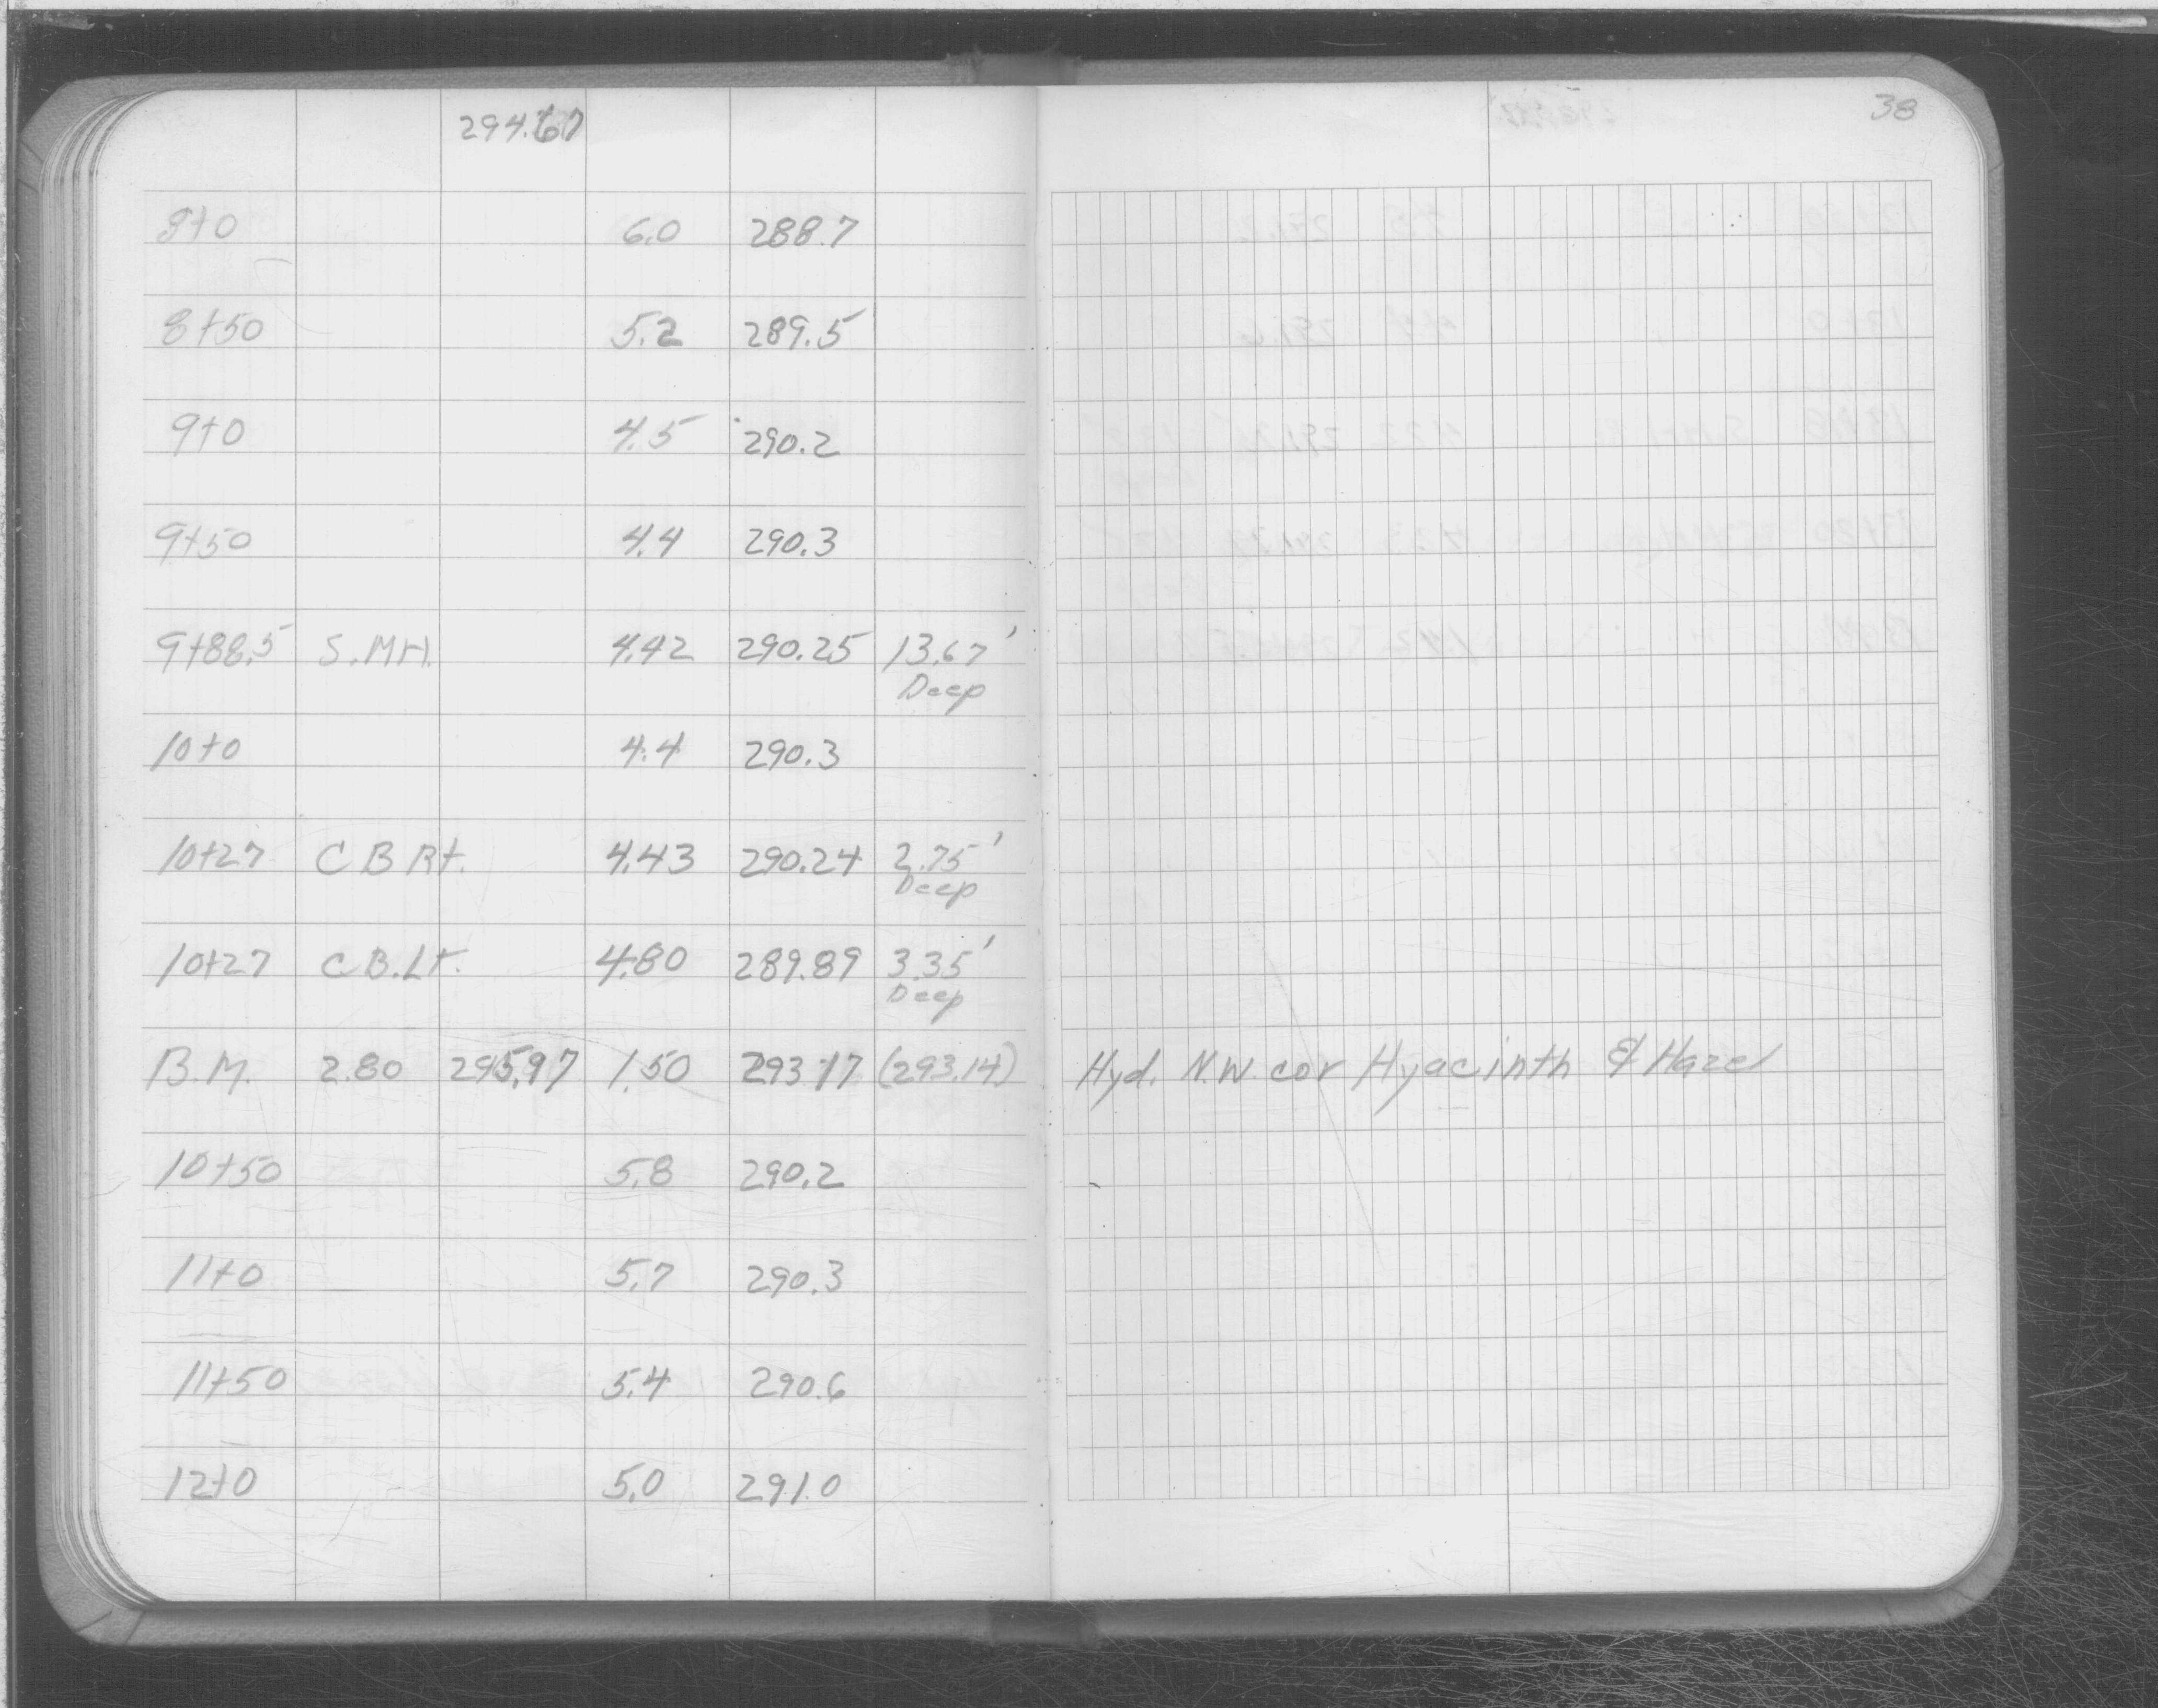 294.67
38
8+0 6.0 288.7
8+50 5.2 289.5
9+0 4.5 290.2
9+50 4.4 290.3
9+88.5 S.MH. 4.42 290.25 13.67'
Deep
10+0 4.4 290.3
10+27 C B Rt. 4.43 290.24 2.75'
Deep
10+27 C B. Lt. 4.80 289.89 3.35'
Deep
B.M. 2.80 295.97 1.50 293.17 (293.14) Hyd. N.W. cor Hyacinth & Hazel
10+50 5.8 290.2
11+0 5.7 290.3
11+50 5.4 290.6
12+0 5.0 291.0